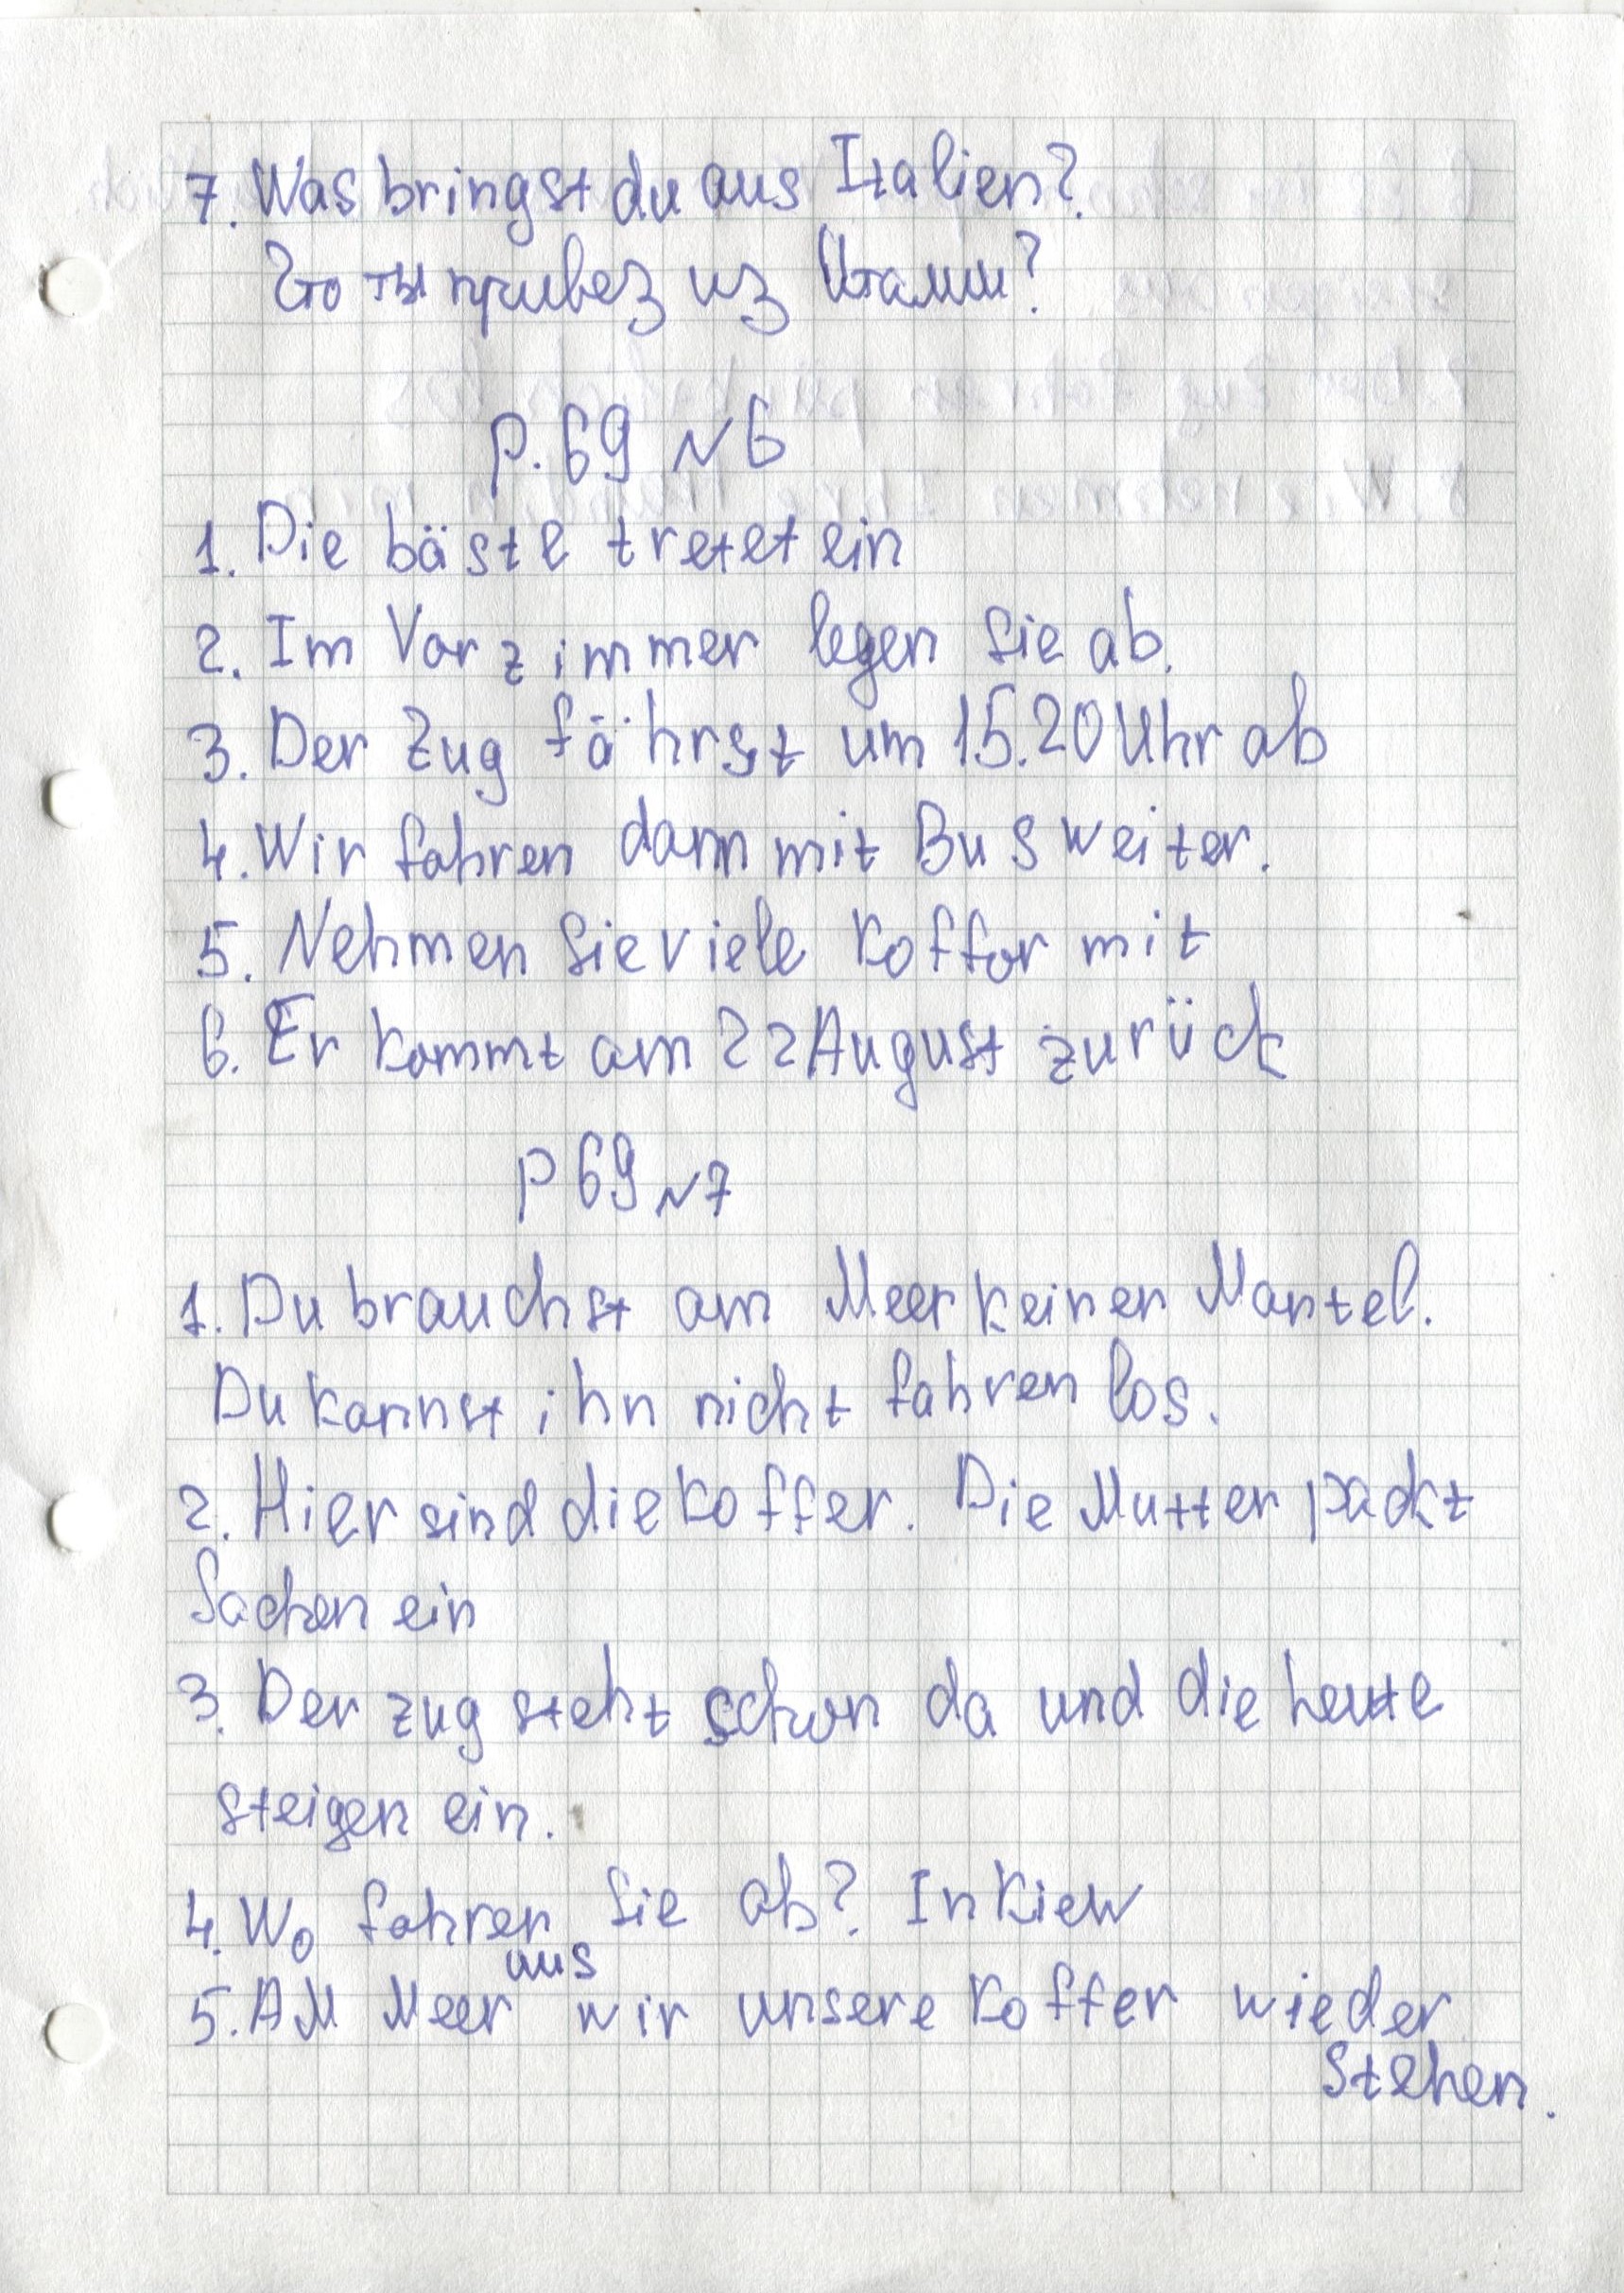 7. Was bringst du aus Italien?
Что ты привез из Италии?
p. 69 N 6
1. Die bäste tretet ein
2. Im Vorzimmer legen Sie ab.
3. Der Zug fährst um 15.20 Uhr ab
4. Wir fahren dann mit Bus weiter.
5. Nehmen Sie viele Koffor mit
6. Er kommt am 22 August zurück
p 69 N 7
1. Du brauchst am Meer keinen Mantel.
Du kannst ihn nicht fahren los.
2. Hier sind die Koffer. Die Mutter packt
Sachen ein
3. Der Zug steht schon da und die heute
steigen ein.
4. Wo fahren Sie ab? In Kiew
aus
5. AM Meer wir unsere Koffer wieder
stehen.